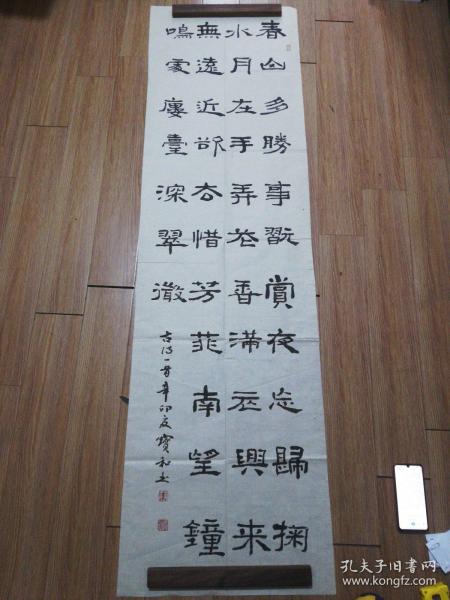 春山多勝事翫賞夜忘歸掬
水月在手弄花香滿衣興來
無遠近欲去惜芳菲南望鐘
鳴處廔臺深翠微
古诗一首辛卯夏寶和书
孔夫子旧书网
www.kongfz.com